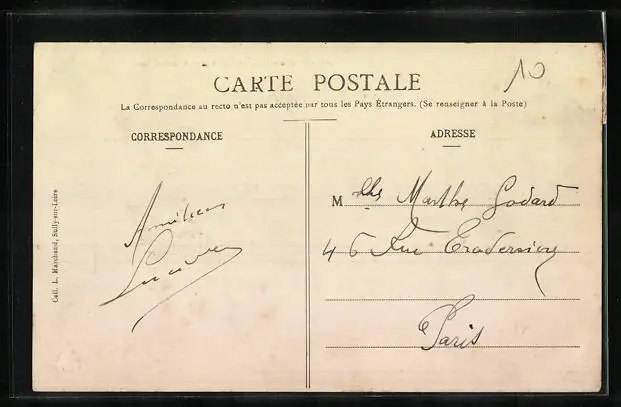 10
CARTE POSTALE
La Correspondance au recto n'est pas acceptée par tous les Pays Étrangers. (Se renseigner à la Poste)
CORRESPONDANCE
Amitiées
ADRESSE
Mlle Marthe Godard
46 Rue Traversière
Paris
Coll. L. Marchand, Sully-sur-Loire